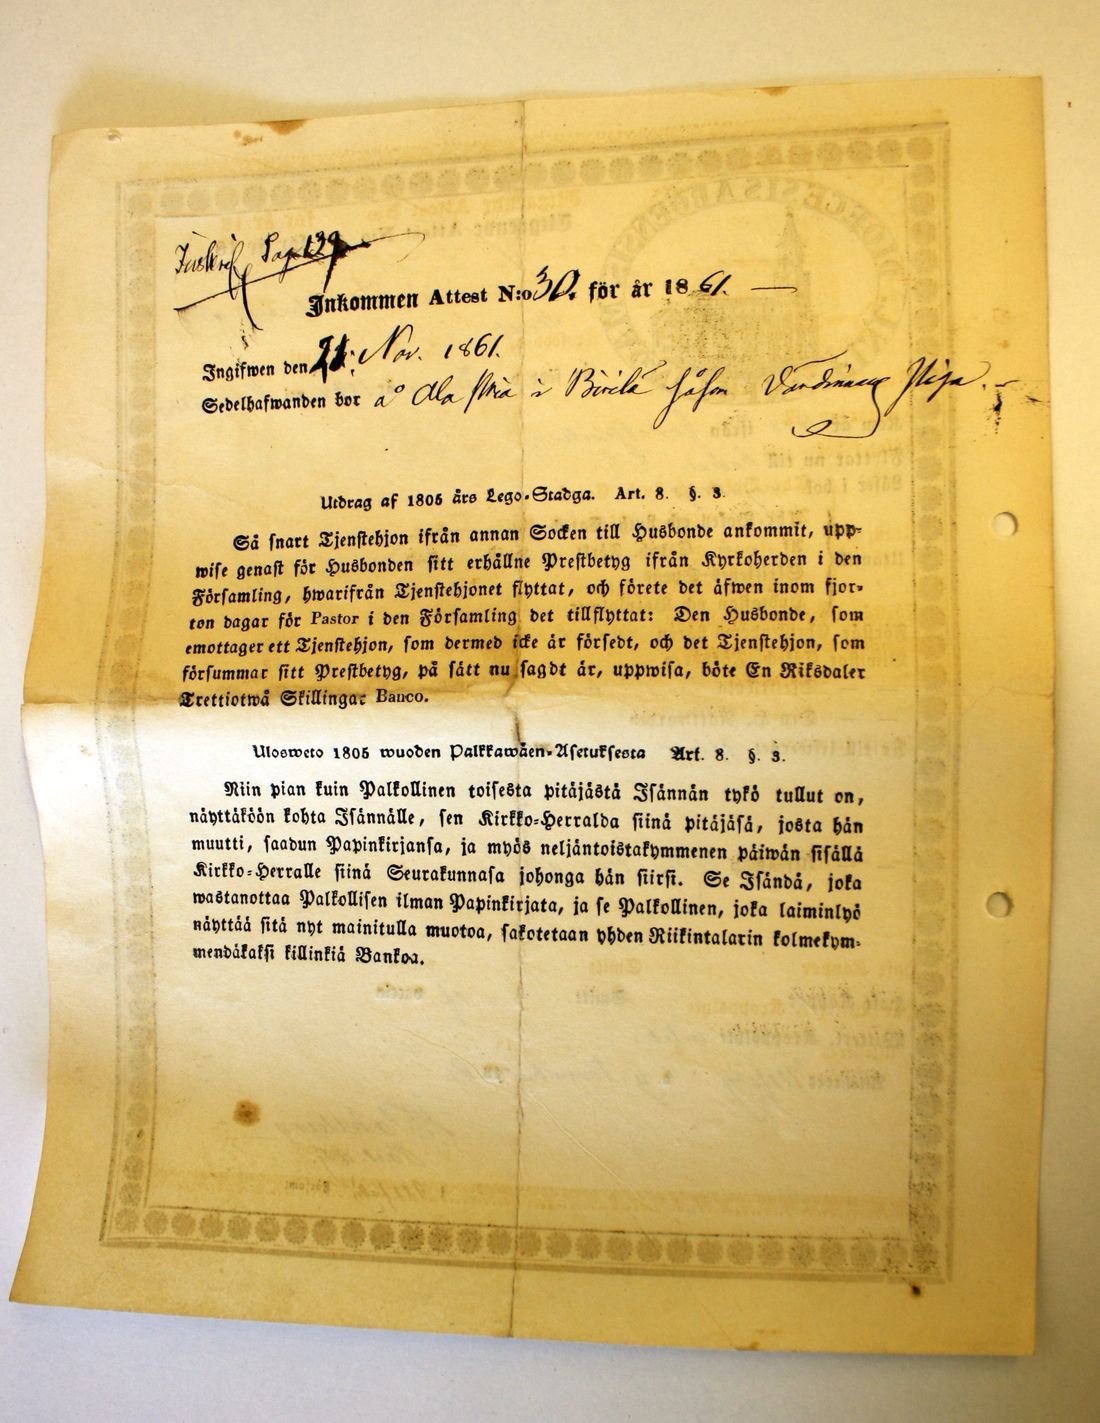 Inskrif. Pag. 139
Inkommen Attest N:o 30. för år 1861.
Ingifwen den 21. Nov. 1861.
Sedelhafwanden bor å Ala i Pirilä såsom Piga.
Utdrag af 1805 års Lego-Stadga. Art. 8. §. 3.
Så snart Tjenstehjon ifrån annan Socken till Husbonde ankommit, upp-
wise genast för Husbonden sitt erhållne Prestbetyg ifrån Kyrkoherden i den
Församling, hwarifrån Tjenstehjonet flyttat, och förete det äfwen inom fjor-
ton dagar för Pastor i den Församling det tillflyttat: Den Husbonde, som
emottager ett Tjenstehjon, som dermed icke är försedt, och det Tjenstehjon, som
försummar sitt Prestbetyg, på sätt nu sagdt är, uppwisa, böte En Riksdaler
Trettiotwå Skillingar Banco.
Ulosweto 1805 wuoden Palkkawäen-Asetuksesta Art. 8. §. 3.
Niin pian kuin Palkollinen toisesta pitäjästä Isännän tykö tullut on,
näyttäköön kohta Isännälle, sen Kirkko-Herralda siinä pitäjäsä, josta hän
muutti, saadun Papinkirjansa, ja myös neljäntoistakymmenen päiwän sisällä
Kirkko-Herralle siinä Seurakunnasa johonga hän siirsi. Se Isändä, joka
wastanottaa Palkollisen ilman Papinkirjata, ja se Palkollinen, joka laiminlyö
näyttää sitä nyt mainitulla muotoa, sakotetaan yhden Riikintalarin kolmekym-
mendäkaksi killinkiä Bankoa.